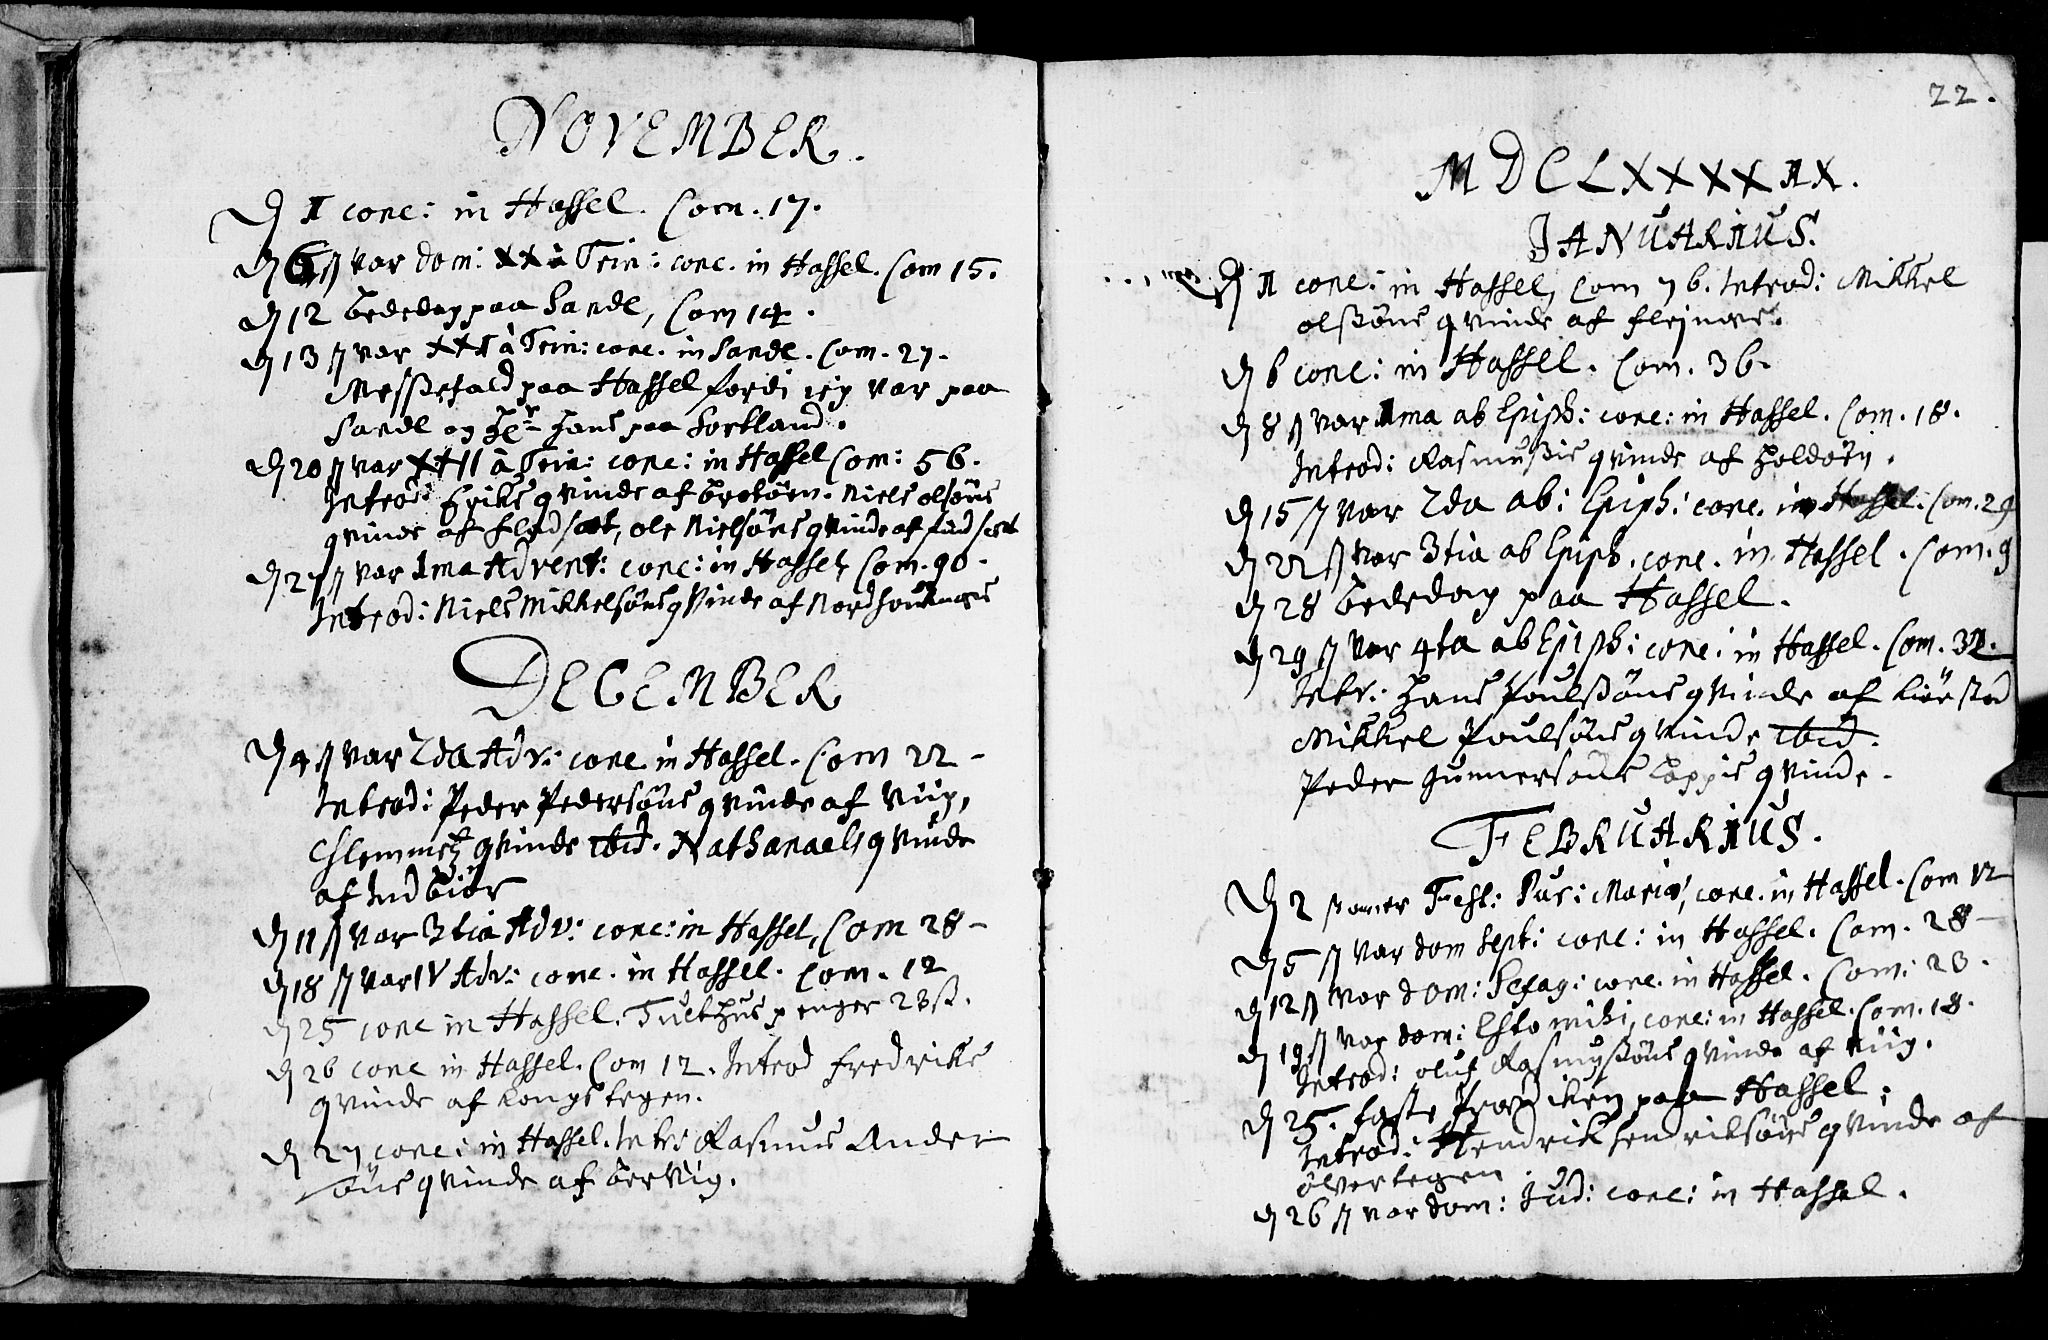 NOVEMBER.
D 1 conc: in Hassel. Com. 17.
D 6 som var dom: XX à Trin: conc. in Hassel. Com 15.
D 12 bededag paa Sandl, Com 14.
D 13 som var XXI à Trin: conc. in Sandl. Com. 27.
Messefald paa Hassel fordi ieg var paa
Sandl og Hr Hans paa Sortland.
D 20 som var XXII à Trin: conc: in Hassel Com: 56.
Introd: Eriks qvinde af Niels olsøns
qvinde af ole Nielsøns qvinde af
D 27 som var 1ma Advent: conc: in Hassel, Com. 90.
Introd: Niels Mikkelsøns qvinde af
DECEMBER
D 4 som var 2da Adv: conc in Hassel. Com 22-
Introd: Peder Pedersøns qvinde af Viig,
qvinde ibid. Nathanaels qvinde
af
D 11 som var 3tia Adv: conc: in Hassel, Com 28-
D 18 som var IV Adv: conc. in Hassel. Com. 12
D 25 conc in Hassel. Tuchthus penger 23ß.
D 26 conc in Hassel. Com 12. Introd Fredriks
qvinde af kongstegen.
D 27 conc: in Hassel. Intr: Rasmus Ander
søns qvinde af
22.
MDCLXXXXIX.
JANUARIUS.
D 1 conc: in Hassel, Com 76. Introd: Mikkel
olssøns qvinde af
D 6 conc: in Hassel. Com. 36.
D 8 som var 1ma ab Epiph: conc: in Hassel. Com. 18.
Introd: qvinde af
D 15 som var 2da ab: Epiph: conc. in Hassel. Com. 29
D 22 som var 3tia ab Epiph. conc. in Hassel. Com. 9
D 28 bededag paa Hassel.
D 29 som var 4ta ab Epiph: conc: in Hassel. Com.
Intr: Hans Poulssøns qvinde af
Mikkel Poulsøns qvinde ibid.
Peder Gunnersøns qvinde.
FEBRUARIUS.
D 2 Fest: Pur: Mariæ, conc. in Hassel. Com 12
D 5 som var dom Sept: conc: in Hassel. Com. 28-
D 12 som var dom: Sexag: conc. in Hassel. Com: 23.
D 19 som var dom: Esto mihi, conc: in Hassel. Com. 18.
Introd: oluf Rasmussøns qvinde af Viig.
D 25. faste prædiken paa Hassel.
Introd: Hendrik Hendriksøns qvinde af
D 26 som var dom: Jud: conc: in Hassel.